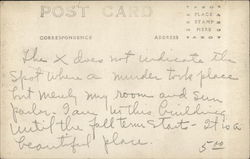 POST CARD
PLACE
STAMP
HERE
CORRESPONDENCE
ADDRESS
The X does not indicate the
spot where a murder took place
but merely my room and sun
parlor. I am in this building
until the fall term start - It is a
beautiful place.